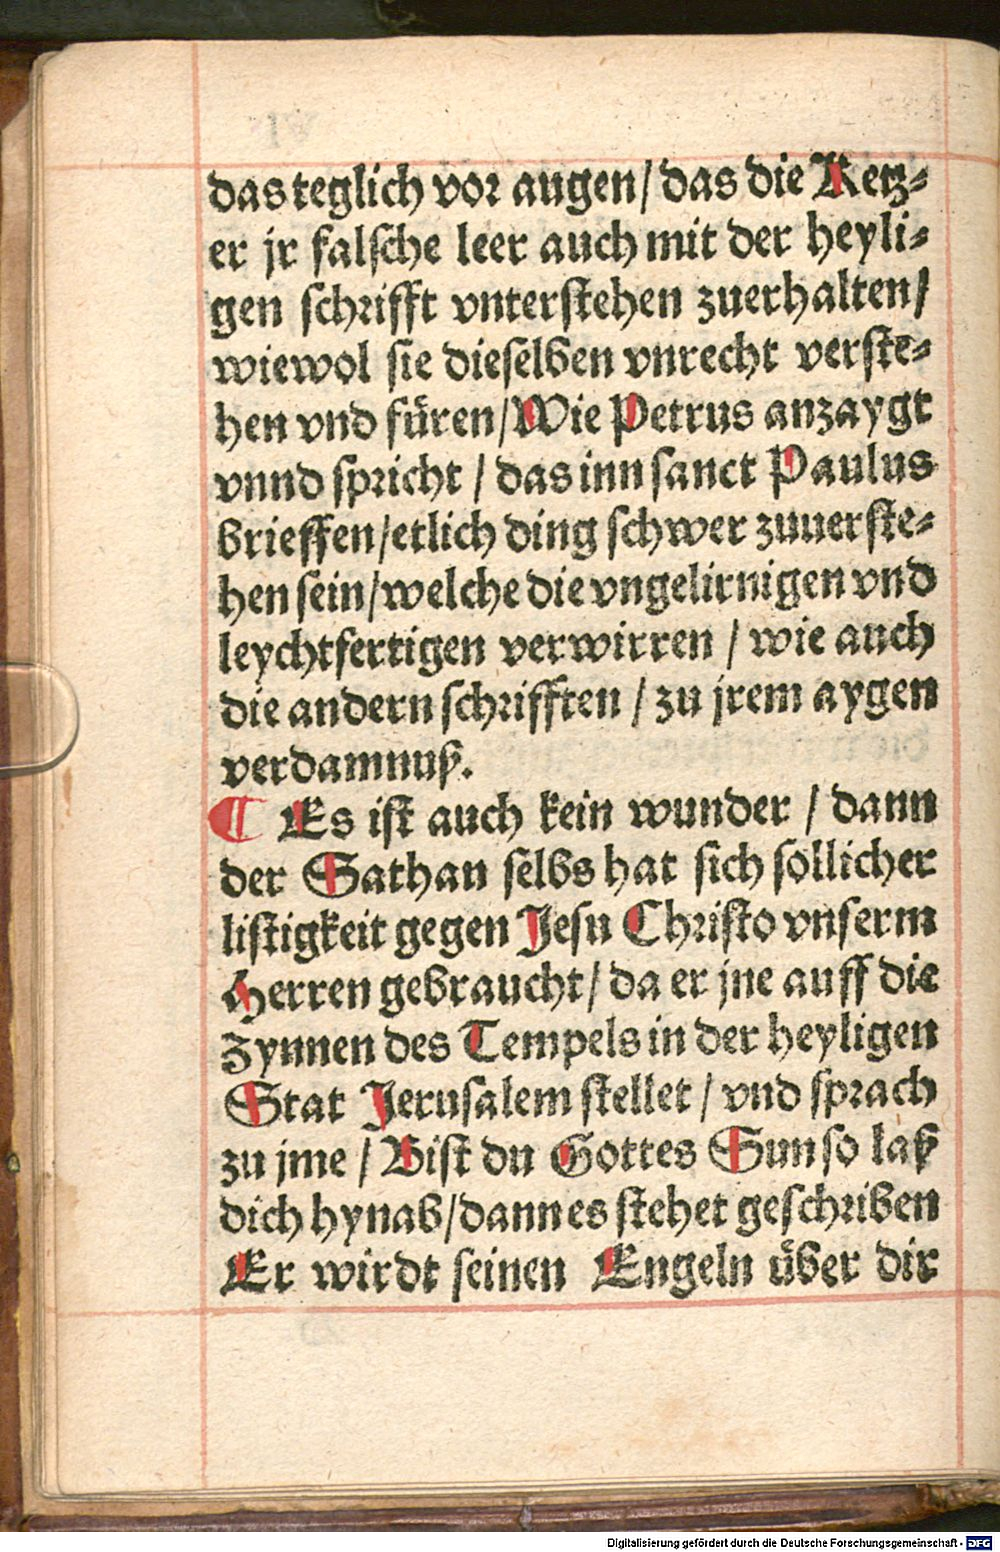 das teglich vor augen/ das die Ketz-
er jr falsche leer auch mit der heyli-
gen schrifft vnterstehen zuerhalten/
wiewol sie dieselben vnrecht verste-
hen vnd füren/ Wie Petrus anzaygt
vnnd spricht / das inn sanct Paulus
brieffen/ etlich ding schwer zuuerste-
hen sein/ welche die vngelirnigen vnd
leychtfertigen verwirren / wie auch
die andern schrifften / zu jrem aygen
verdamnuß.
¶ Es ist auch kein wunder / dann
der Sathan selbs hat sich sollicher
listigkeit gegen Jesu Christo vnserm
Herren gebraucht/ da er jne auff die
Zynnen des Tempels in der heyligen
Stat Jerusalem stellet / vnd sprach
zu jme / Bist du Gottes Sun so laß
dich hynab/ dann es stehet geschriben
Er wirdt seinen Engeln über dir
Digitalisierung gefördert durch die Deutsche Forschungsgemeinschaft - DFG